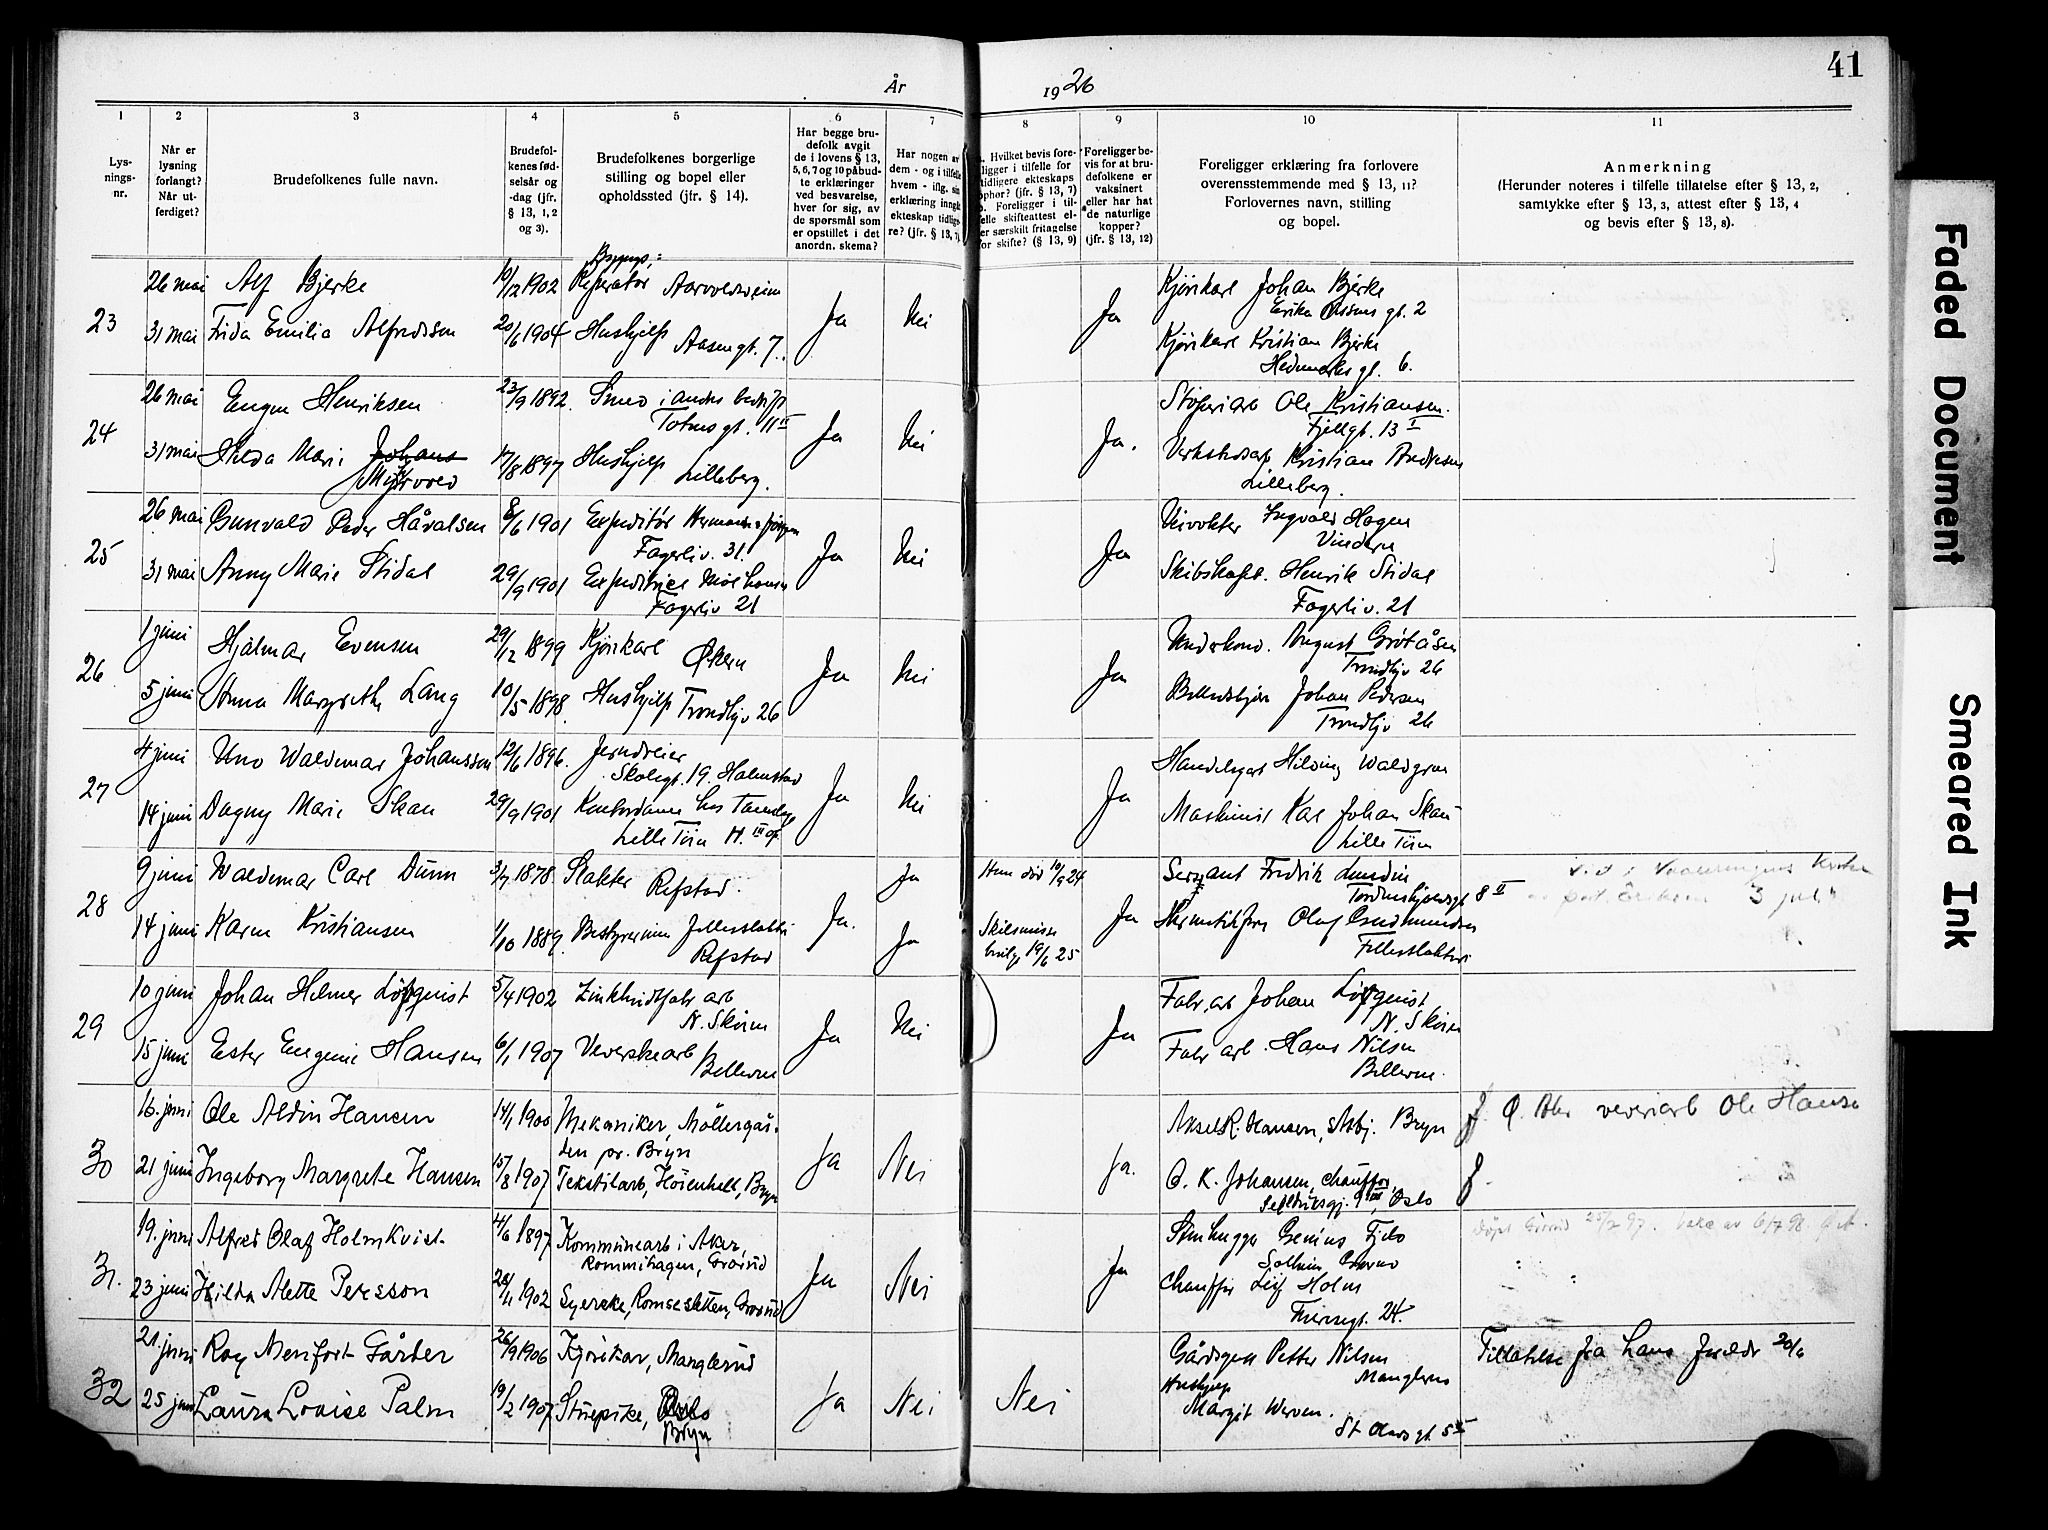 41
År 1926
1
2
3
4
5
6
7
8
9
10
11
Lysningsnr.
Når er lysning forlangt? Når utferdiget?
Brudefolkenes fulle navn.
Brudefolkenes fødselsår og -dag (jfr. § 13, 1, 2 og 3).
Brudefolkenes borgerlige stilling og bopel eller opholdssted (jfr. § 14).
Har begge brudefolk avgit de i lovens § 13, 5, 6, 7 og 10 påbudte erklæringer ved besvarelse, hver for sig, av de spørsmål som er opstillet i det anordn. skema?
Har nogen av dem - og i tilfelle hvem - iflg. sin erklæring inngå ekteskap tidligere? (jfr. § 13, 7)
Hvilket bevis foreligger i tilfelle for tidligere ekteskaps ophør? (jfr. § 13, 7) Foreligger i tilfelle skifteattest eller særskilt fritagelse for skifte? (§ 13, 9)
Foreligger bevis for at brudefolkene er vaksinert eller har hat de naturlige kopper? (jfr. § 13, 12)
Foreligger erklæring fra forlovere overensstemmende med § 13, 11? Forlovernes navn, stilling og bopel.
Anmerkning
(Herunder noteres i tilfelle tillatelse efter § 13, 2, samtykke efter § 13, 3, attest efter § 13, 4 og bevis efter § 13, 8).
23
26 mai Alf Bjerke 10/12 1902 Reperatør Ja Nei Ja Kjørekarl Johan Bjerke
gt. 2
31 mai Frida Emilia Alfredssen 20/6 1904 Hushjelp Aasengt. 7. Kjørekarl Kristian Bjerke
Hedmarksgt. 6.
24
26 mai Eugen Henriksen 23/9 1892 Smed i andes bedrift Totensgt. 11 II Ja Nei Ja. Ole Kristiansen.
Fjellgt. 13 I
31 mai Hilda Marie Johans 17/8 1897 Hushjelp Lilleberg. Kristian
Myrvold Lilleberg.
25
26 mai Gunvald Peder Håvalsen 8/6 1901 Expeditør Fagerliv. 31. Ja Nei Ja Ingvald Hagen
Vindern
31 mai Anny Marie Stidal 29/9 1901 Expeditrice Fagerliv 21 Henrik Stidal
Fagerliv. 21
26
1 juni Hjalmar Evensen 29/12 1899 Kjørekarl Økern Ja Nei Ja August Grøtåsen
Trondhjv 26
5 juni Anna Margrethe Lang 10/5 1898 Hushjelp Trondhjv 26 Johan Pedersen
Trondhjv 26
27
4 juni Uno Waldemar Johansson 12/6 1896. Jerndreier Skolegt. 19. Halmstad Ja Nei Ja Hilding Waldgren
14 juni Dagny Marie Skau 29/9 1901 Kontordame hos Lille Tøien H. III op. Maskinist Karl Johan Skau
Lille Tøien
28
9 juni Waldemar Carl Dunn 3/7 1878 Slakter Refstad. Ja. Ja Hun død 10/9 24 Ja Sersjant Fredrik Lundin
Tordenskjoldsgt 8 II 3 juli
14 juni Karen Kristiansen 1/10 1889 Bestyrerinne Fellesslakteri Refstad Ja Skilsmisse bevilg. 19/6 25 Olaf Gudmundsen
Fellesslakteri
29
10 juni Johan Hilmer Löfquist 5/4 1902 Zinkhvitfabr arb N. Skøien Ja Nei Ja Fabr. arb Johan Löfquist
N. Skøien
15 juni Ester Eugenie Hansen 6/1 1907 Veverskearb Bellevue Fabr arb. Hans Nilsen
Bellevue.
30
16. juni Ole Aldin Hansen 14/1 1900 Mekaniker, Møllergården pr. Bryn Ja Nei Ja. Aksel R. Hansen, Arbj. Bryn Ole Hansen
21 juni Ingeborg Margrete Hansen 15/8 1907 Tekstilarb, Høienhall, Bryn O. K. Johansen, chauffør,
9 III, Oslo
31.
19. juni Alfred Olaf Holmkvist 4/6 1897 Kommunearb i Aker, Rommihagen, Grorud Ja Nei Ja Stenhugger Fjeld
23 juni Hilda Alette Persson 28/11 1902 Syerske, Romsesletten, Grorud Chauffør Leif Holm
24.
32
21. juni Roy Menfort Gårder 26/9 1906 Kjørekar, Manglerud Ja Nei Nei Petter Nilsen
Manglerud
Tillatelse fra 20/6
25 juni Laura Louise Palm 19/2 1907 Stuepike, Oslo
Bryn
Hushjelp
Margit Werven.
St Olavsgt. 5
Faded Document
Smeared Ink